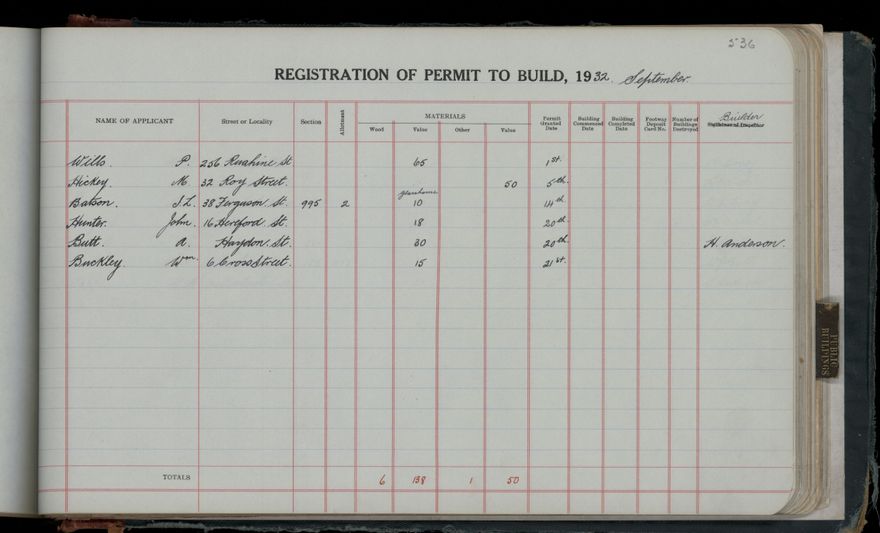 536
REGISTRATION OF PERMIT TO BUILD, 1932. September.
NAME OF APPLICANT Street or Locality Section Allotment MATERIALS Wood Value Other Value Permit Granted Date Building Commenced Date Building Completed Date Footway Deposit Card No. Number of Buildings Destroyed Builder Signature of Inspector
Wills. P. 256 Ruahine St 65 1st.
Hickey. M. 32 Roy Street. 50 5th.
glasshouse
Batson. J.L. 38 Ferguson St. 995 2 10 14th
Hunter. John. 16 Hereford St. 18 20th.
Butt. A. Haydon St. 30 20th. H. Anderson.
Buckley. Wm. 6 Cross Street. 15 21st.
TOTALS 6 138 1 50
PUBLIC BUILDINGS